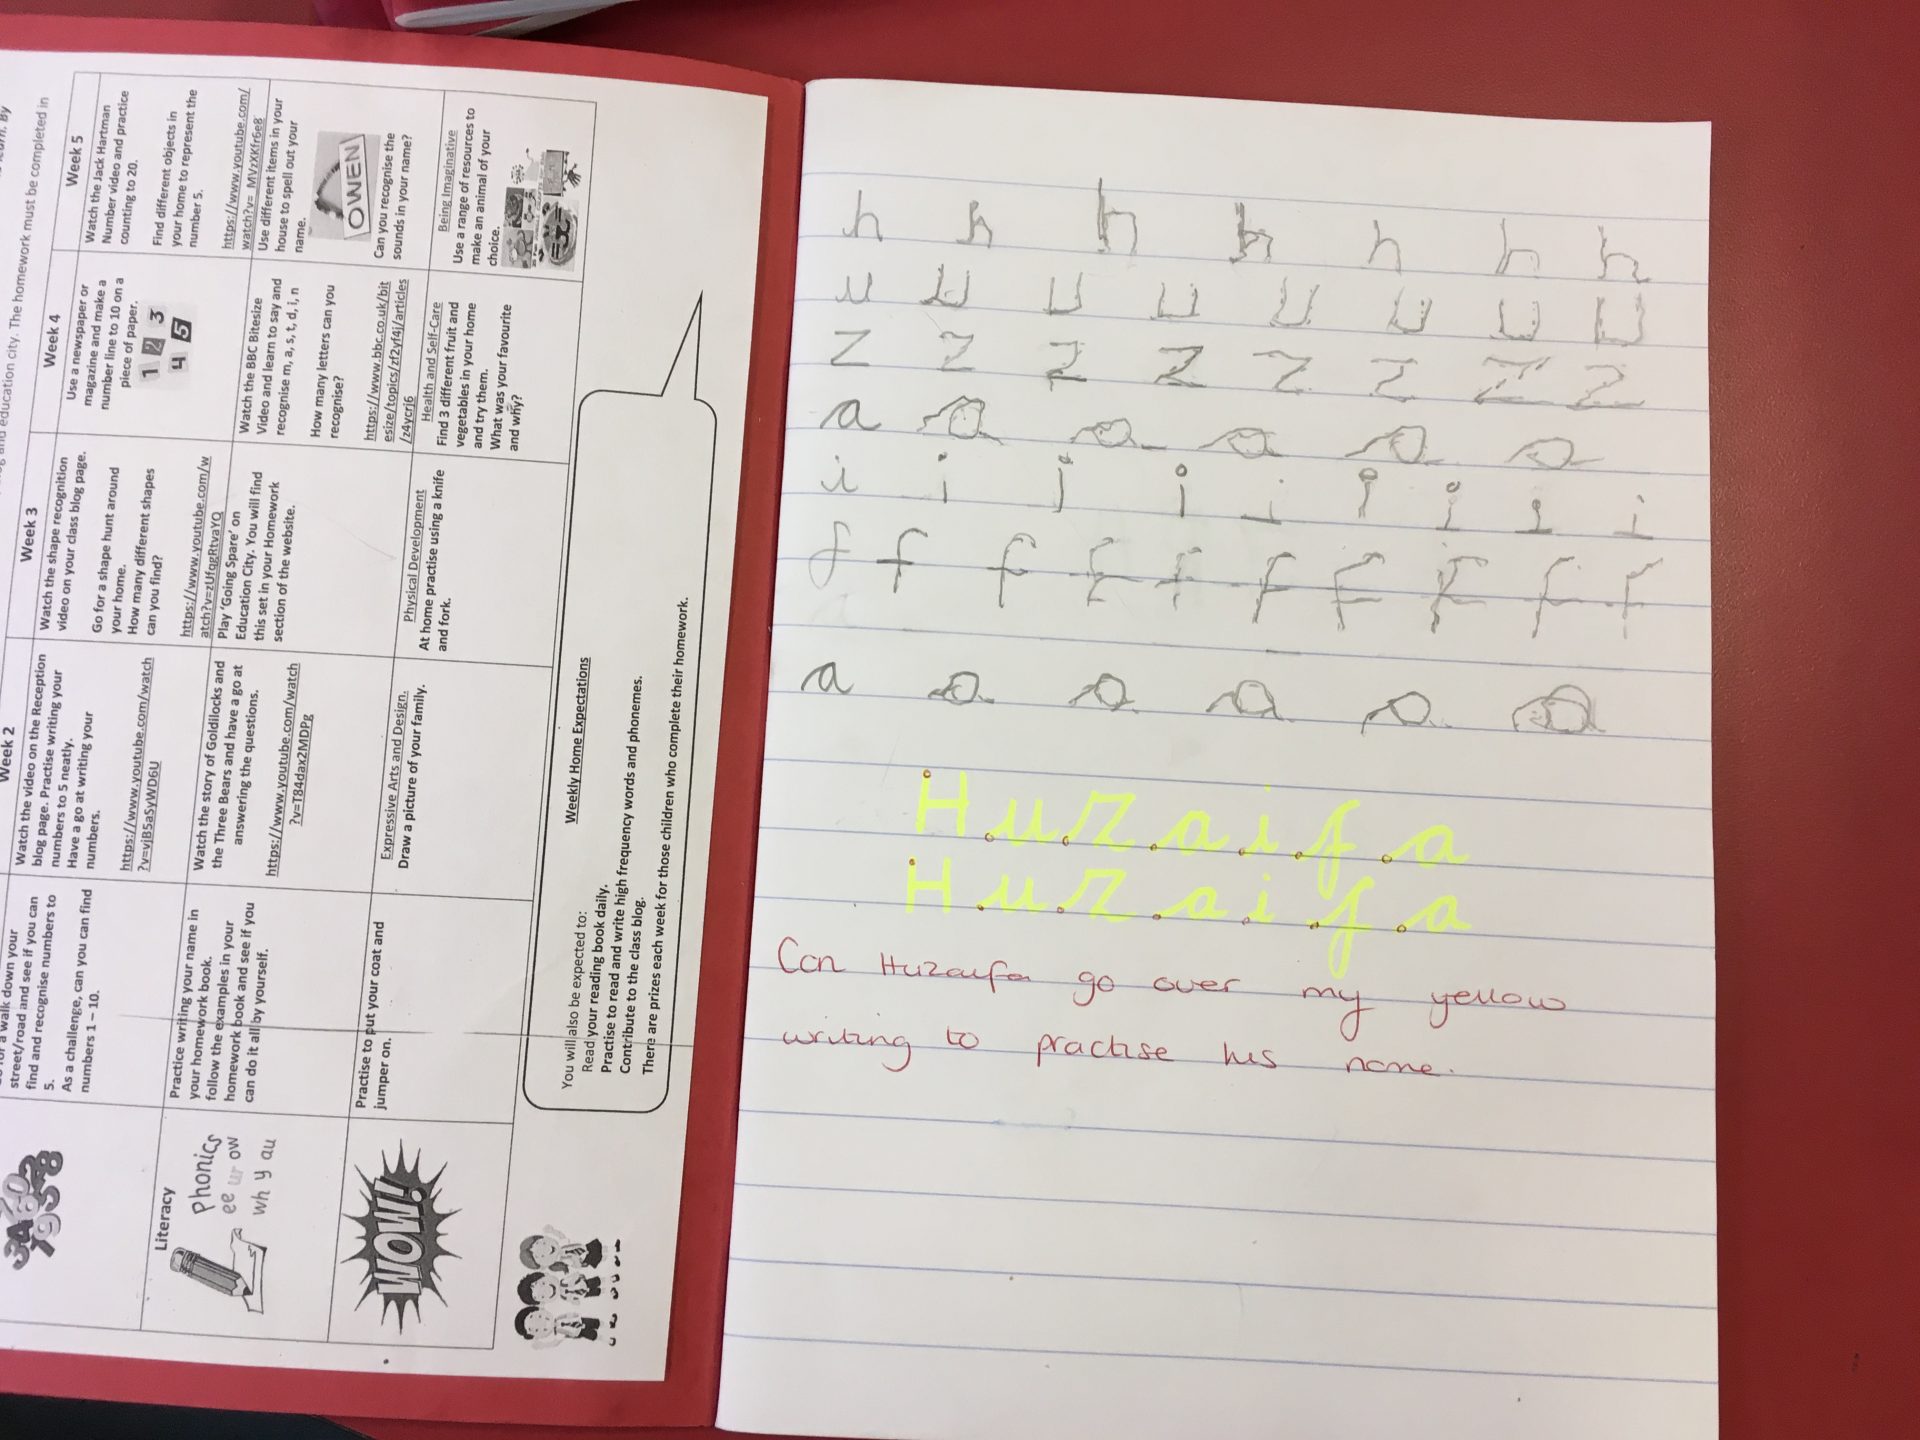 learn. By
and education city. The homework must be completed in
Week 2
Week 3
Week 4
Week 5
a walk down your
street/road and see if you can
find and recognise numbers to
5.
As a challenge, can you find
numbers 1 – 10.
Watch the video on the Reception
blog page. Practise writing your
numbers to 5 neatly.
Have a go at writing your
numbers.
https://www.youtube.com/watch
?v=vjB5aSyWD6U
Watch the shape recognition
video on your class blog page.
Go for a shape hunt around
your home.
How many different shapes
can you find?
https://www.youtube.com/w
atch?v=zUfqgRtvaYQ
Use a newspaper or
magazine and make a
number line to 10 on a
piece of paper.
1 2 3
4 5
Watch the Jack Hartman
Number video and practice
counting to 20.
Find different objects in
your home to represent the
number 5.
https://www.youtube.com/
watch?v=_MVzXKfr6e8
Literacy
Phonics
ee ur ow
wh y au
Practice writing your name in
your homework book.
follow the examples in your
homework book and see if you
can do it all by yourself.
Watch the story of Goldilocks and
the Three Bears and have a go at
answering the questions.
https://www.youtube.com/watch
?v=T84dax2MDPg
Play 'Going Spare' on
Education City. You will find
this set in your Homework
section of the website.
Watch the BBC Bitesize
Video and learn to say and
recognise m, a, s, t, d, i, n
How many letters can you
recognise?
https://www.bbc.co.uk/bit
esize/topics/zf2yf4j/articles
/z4ycrj6
Use different items in your
house to spell out your
name.
OWEN
Can you recognise the
sounds in your name?
WOW!
Practise to put your coat and
jumper on.
Expressive Arts and Design.
Draw a picture of your family.
Physical Development
At home practise using a knife
and fork.
Health and Self-Care
Find 3 different fruit and
vegetables in your home
and try them.
What was your favourite
and why?
Being Imaginative
Use a range of resources to
make an animal of your
choice.
Weekly Home Expectations
You will also be expected to:
Read your reading book daily.
Practise to read and write high frequency words and phonemes.
Contribute to the class blog.
There are prizes each week for those children who complete their homework.
h h h h h h h
u u u u u u u u
z z z z z z z z
a a a a a a
i i i i i i i i i
f f f f f f f f f f
a a a a a a
Huzaifa
Huzaifa
Can Huzaifa go over my yellow
writing to practise his name.